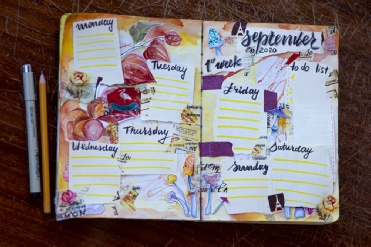 Monday
Tuesday
Wednesday
Thursday
september
2020
1st week
to do list
Friday
Saturday
Sunday